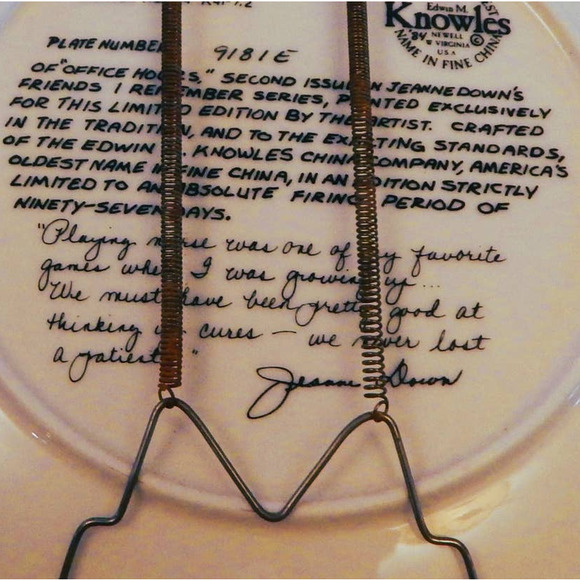 Edwin M.
Knowles ©
'84 NEWELL
W VIRGINIA
U.S.A
NAME IN FINE CHINA
PLATE NUMBER 9181E
OF "OFFICE HOURS," SECOND ISSUE IN JEANNE DOWN'S
FRIENDS I REMEMBER SERIES, PAINTED EXCLUSIVELY
FOR THIS LIMITED EDITION BY THE ARTIST. CRAFTED
IN THE TRADITION, AND TO THE EXACTING STANDARDS,
OF THE EDWIN M. KNOWLES CHINA COMPANY, AMERICA'S
OLDEST NAME IN FINE CHINA, IN AN EDITION STRICTLY
LIMITED TO AN ABSOLUTE FIRING PERIOD OF
NINETY-SEVEN DAYS.
"Playing nurse was one of my favorite
games when I was growing up...
We must have been pretty good at
thinking up cures — we never lost
a patient."
Jeanne Down